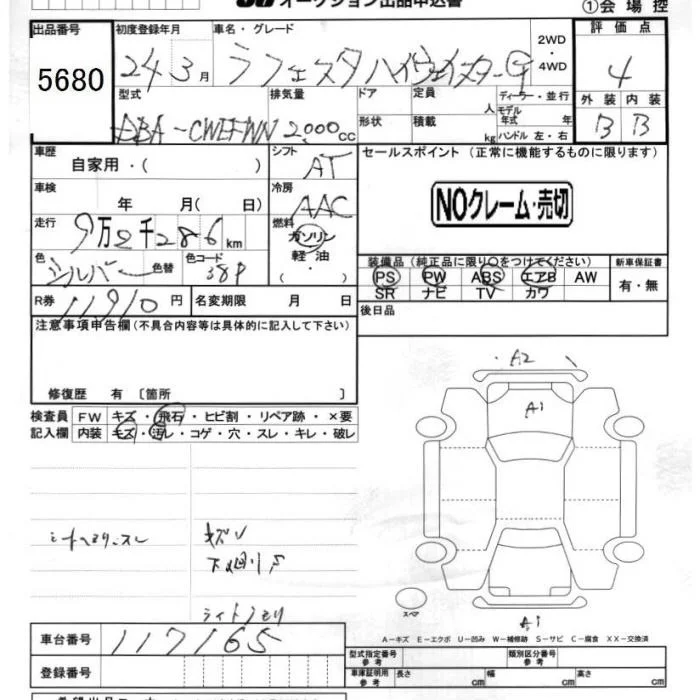 オークション出品申込書
①会場控
出品番号 初度登録年月 車名・グレード 2WD・4WD 評価点
5680 24年3月 ラフェスタハイウェイスターG 4
型式 排気量 ドア 定員 ディーラー・並行 外装 内装
DBA-CWEFWN 2000cc 形状 積載 人 kg モデル年式 年 ハンドル 左・右 B B
車歴 シフト セールスポイント(正常に機能するものに限ります)
自家用・( ) AT
車検 冷房
年 月( 日) AAC NOクレーム・売切
走行 燃料
9万2千286km ガソリン
軽油
( ・ )
色 色替 色コード 装備品(純正品に限り○をつけてください) 新車保証書
シルバー 38P PS PW ABS エアB AW 有・無
SR ナビ TV カワ
R券 11910円 名変期限 月 日 後日品
注意事項申告欄(不具合内容等は具体的に記入して下さい)
修復歴 有 〔箇所 〕
検査員 FW キズ・飛石・ヒビ割・リペア跡・×要
記入欄 内装 キズ・汚レ・コゲ・穴・スレ・キレ・破レ
A2
A1
キズ
スペア
A1
A−キズ E−エクボ U−凹み W−補修跡 S−サビ C−腐食 XX−交換済
車台番号 117165 型式指定番号 参考 類別区分番号 参考
登録番号 車庫証明用 参考 長さ cm 幅 cm 高さ cm